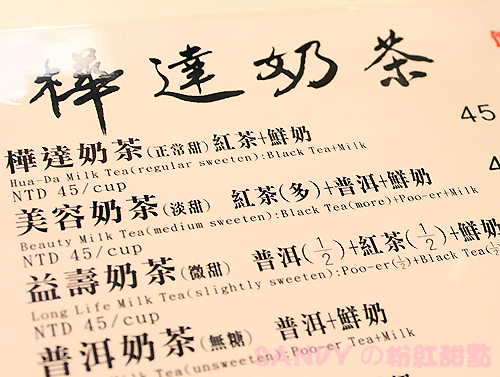 樺達奶茶
樺達奶茶(正常甜) 紅茶+鮮奶 45
Hua-Da Milk Tea(regular sweeten):Black Tea+Milk
NTD 45/cup
美容奶茶(淡甜) 紅茶(多)+普洱+鮮奶
Beauty Milk Tea(medium sweeten):Black Tea(more)+Poo-er+Milk
NTD 45/cup
益壽奶茶(微甜) 普洱(1/2)+紅茶(1/2)+鮮奶
Long Life Milk Tea(slightly sweeten):Poo-er(1/2)+Black Tea
NTD 45/cup
普洱奶茶(無糖) 普洱+鮮奶
Milk Tea(unsweeten):Poo-er Tea+Milk
SANDYの粉紅甜點